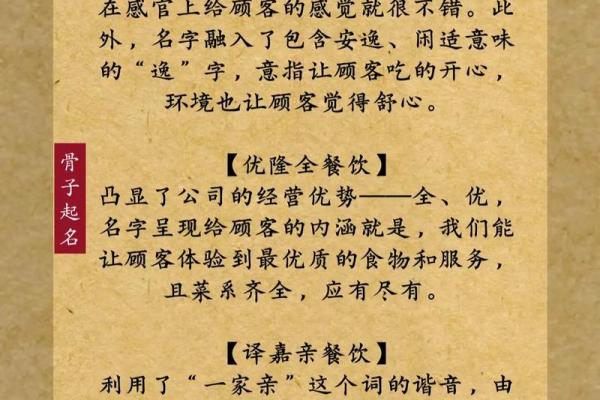 在感官上给顾客的感觉就很不错。此
外，名字融入了包含安逸、闲适意味
的“逸”字，意指让顾客吃的开心，
环境也让顾客觉得舒心。
骨子起名
【优隆全餐饮】
凸显了公司的经营优势——全、优，
名字呈现给顾客的内涵就是，我们能
让顾客体验到最优质的食物和服务，
且菜系齐全，应有尽有。
【译嘉亲餐饮】
利用了“一家亲”这个词的谐音，由